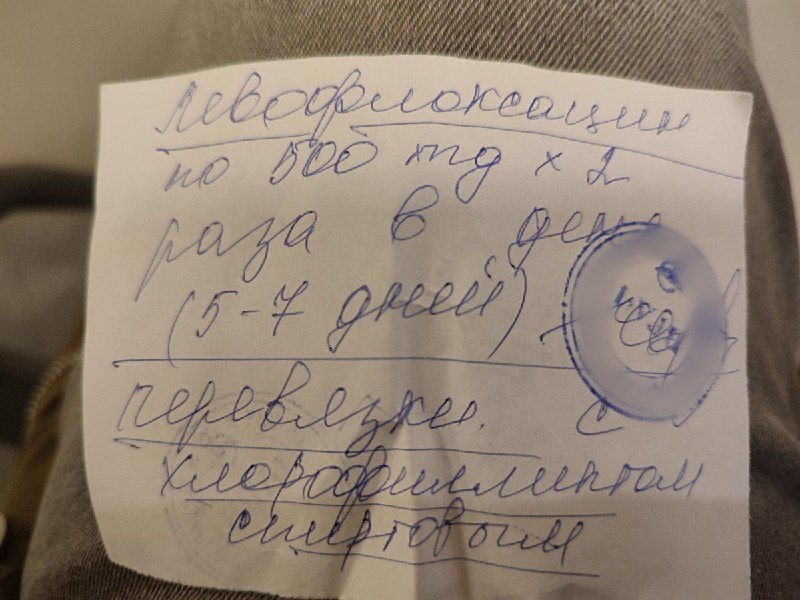 Левофлоксацин
по 500 мд х 2
раза в день
(5-7 дней)
перевязки. с
хлорофиллиптом
спиртовым